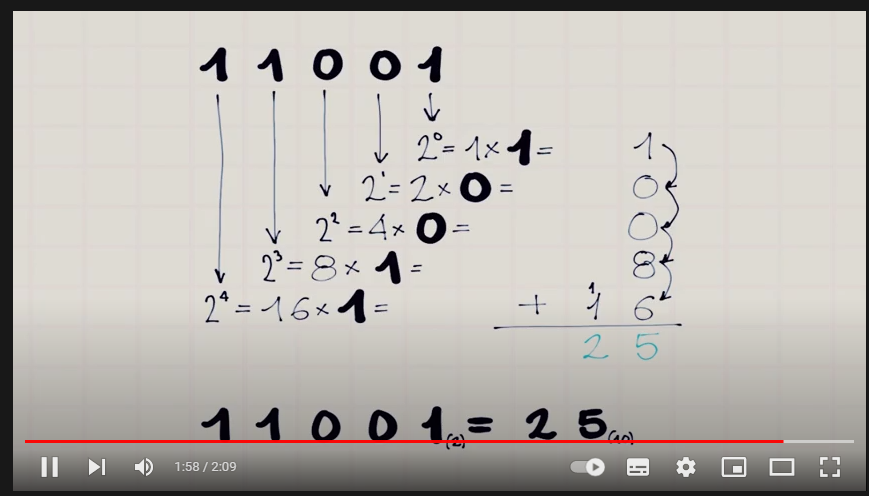 1 1 0 0 1
2⁰ = 1 × 1 = 1
2¹ = 2 × 0 = 0
2² = 4 × 0 = 0
2³ = 8 × 1 = 8
2⁴ = 16 × 1 = + ¹1 6
2 5
1 1 0 0 1(2) = 2 5(10)
1:58 / 2:09